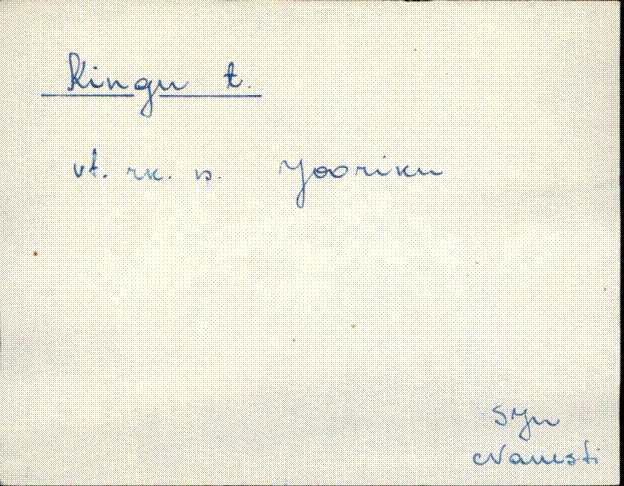 Kingu t.
vt. rk. s. Jooriku
SJn
Vanesti